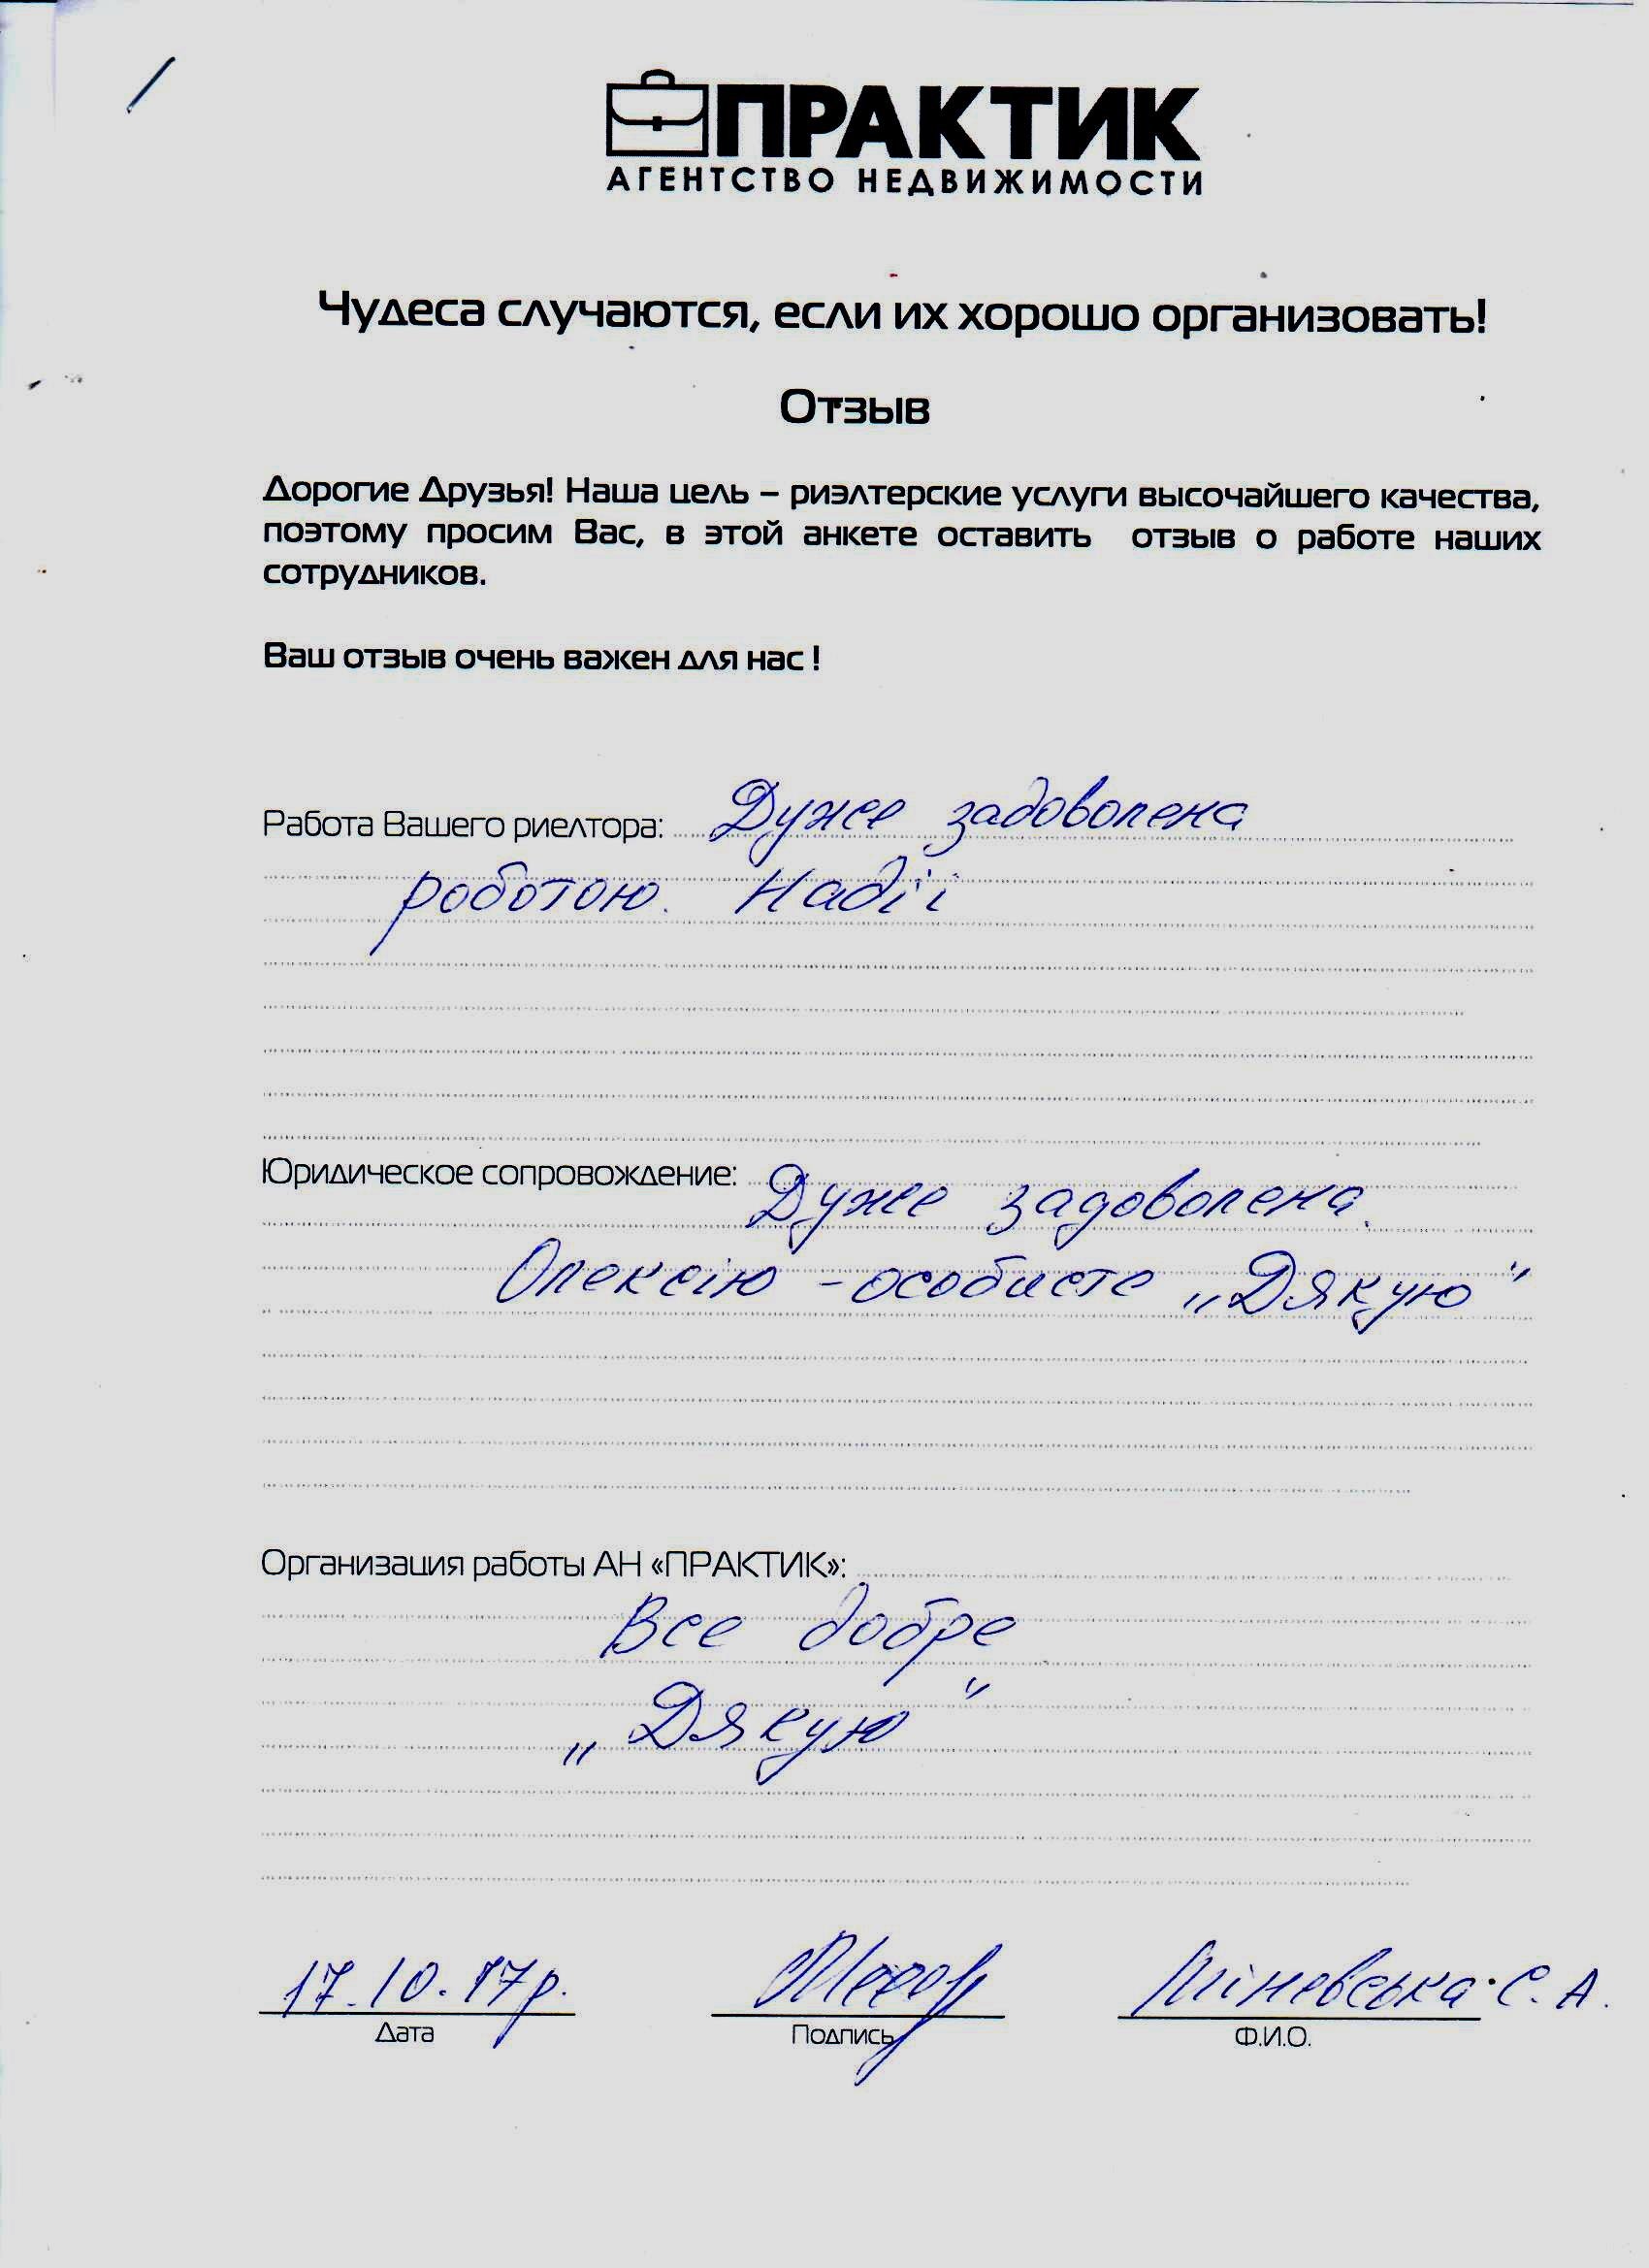 ПРАКТИК
АГЕНТСТВО НЕДВИЖИМОСТИ
Чудеса случаются, если их хорошо организовать!
Отзыв
Дорогие Друзья! Наша цель – риэлтерские услуги высочайшего качества,
поэтому просим Вас, в этой анкете оставить отзыв о работе наших
сотрудников.
Ваш отзыв очень важен для нас !
Работа Вашего риелтора: Дуже задоволена
роботою. Надії
Юридическое сопровождение: Дуже задоволена.
Олексію - особисте „Дякую"
Организация работы АН «ПРАКТИК»:
Все добре
„Дякую"
17.10.17р. С. А.
Дата Подпись Ф.И.О.